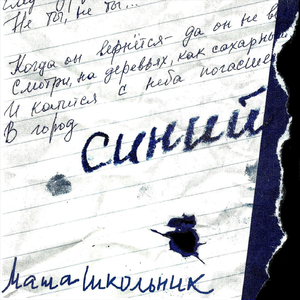 Не ты, не ты...
Когда он вернётся - да он не
Смотри, на деревьях, как сахарный
И катится с неба погасшее
В город
синий
Маша Школьник